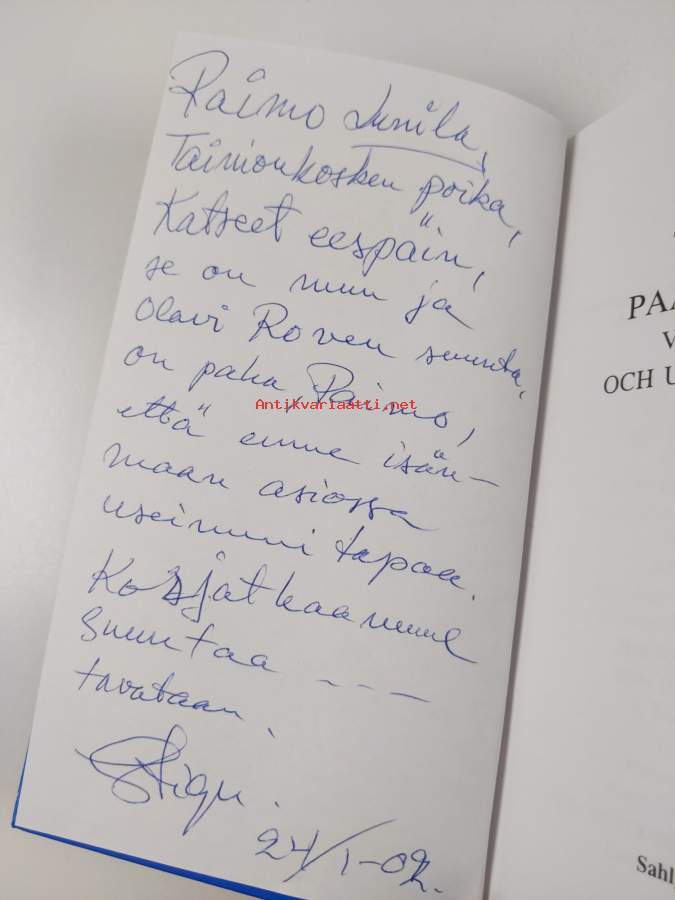 Raimo Junila,
Tainionkosken poika,
Katseet eespäin,
se on mun ja
Olavi Roven suunta,
on paha, Raimo,
että emme isän-
maan asiossa
useimmin tapaa.
jatkaamme
Suuntaa ---
tavataan.
Stigu.
24/1-02.
Antikvariaatti.net
PAA
V
OCH U
Sahl